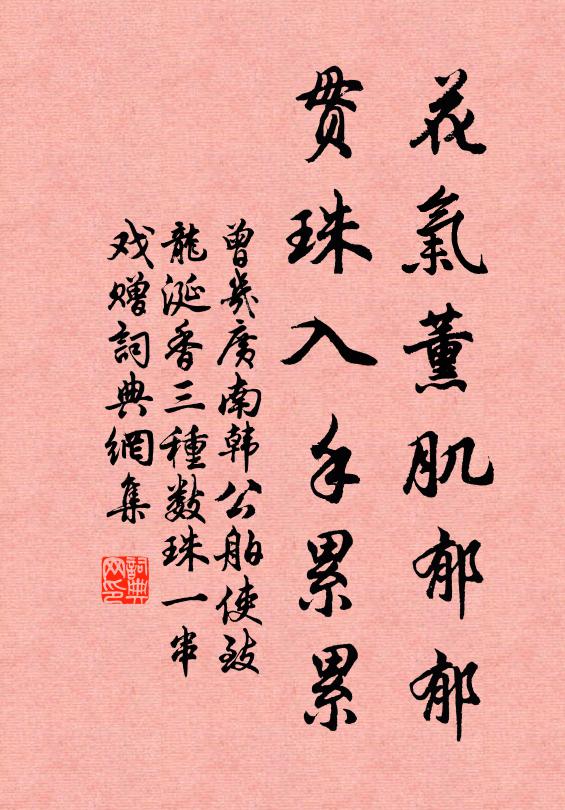 花氣薰肌郁郁
貫珠入手累累
曾幾廣南韩公舶使致
龍涎香三種數珠一串
戏赠詞典網集
詞典网印